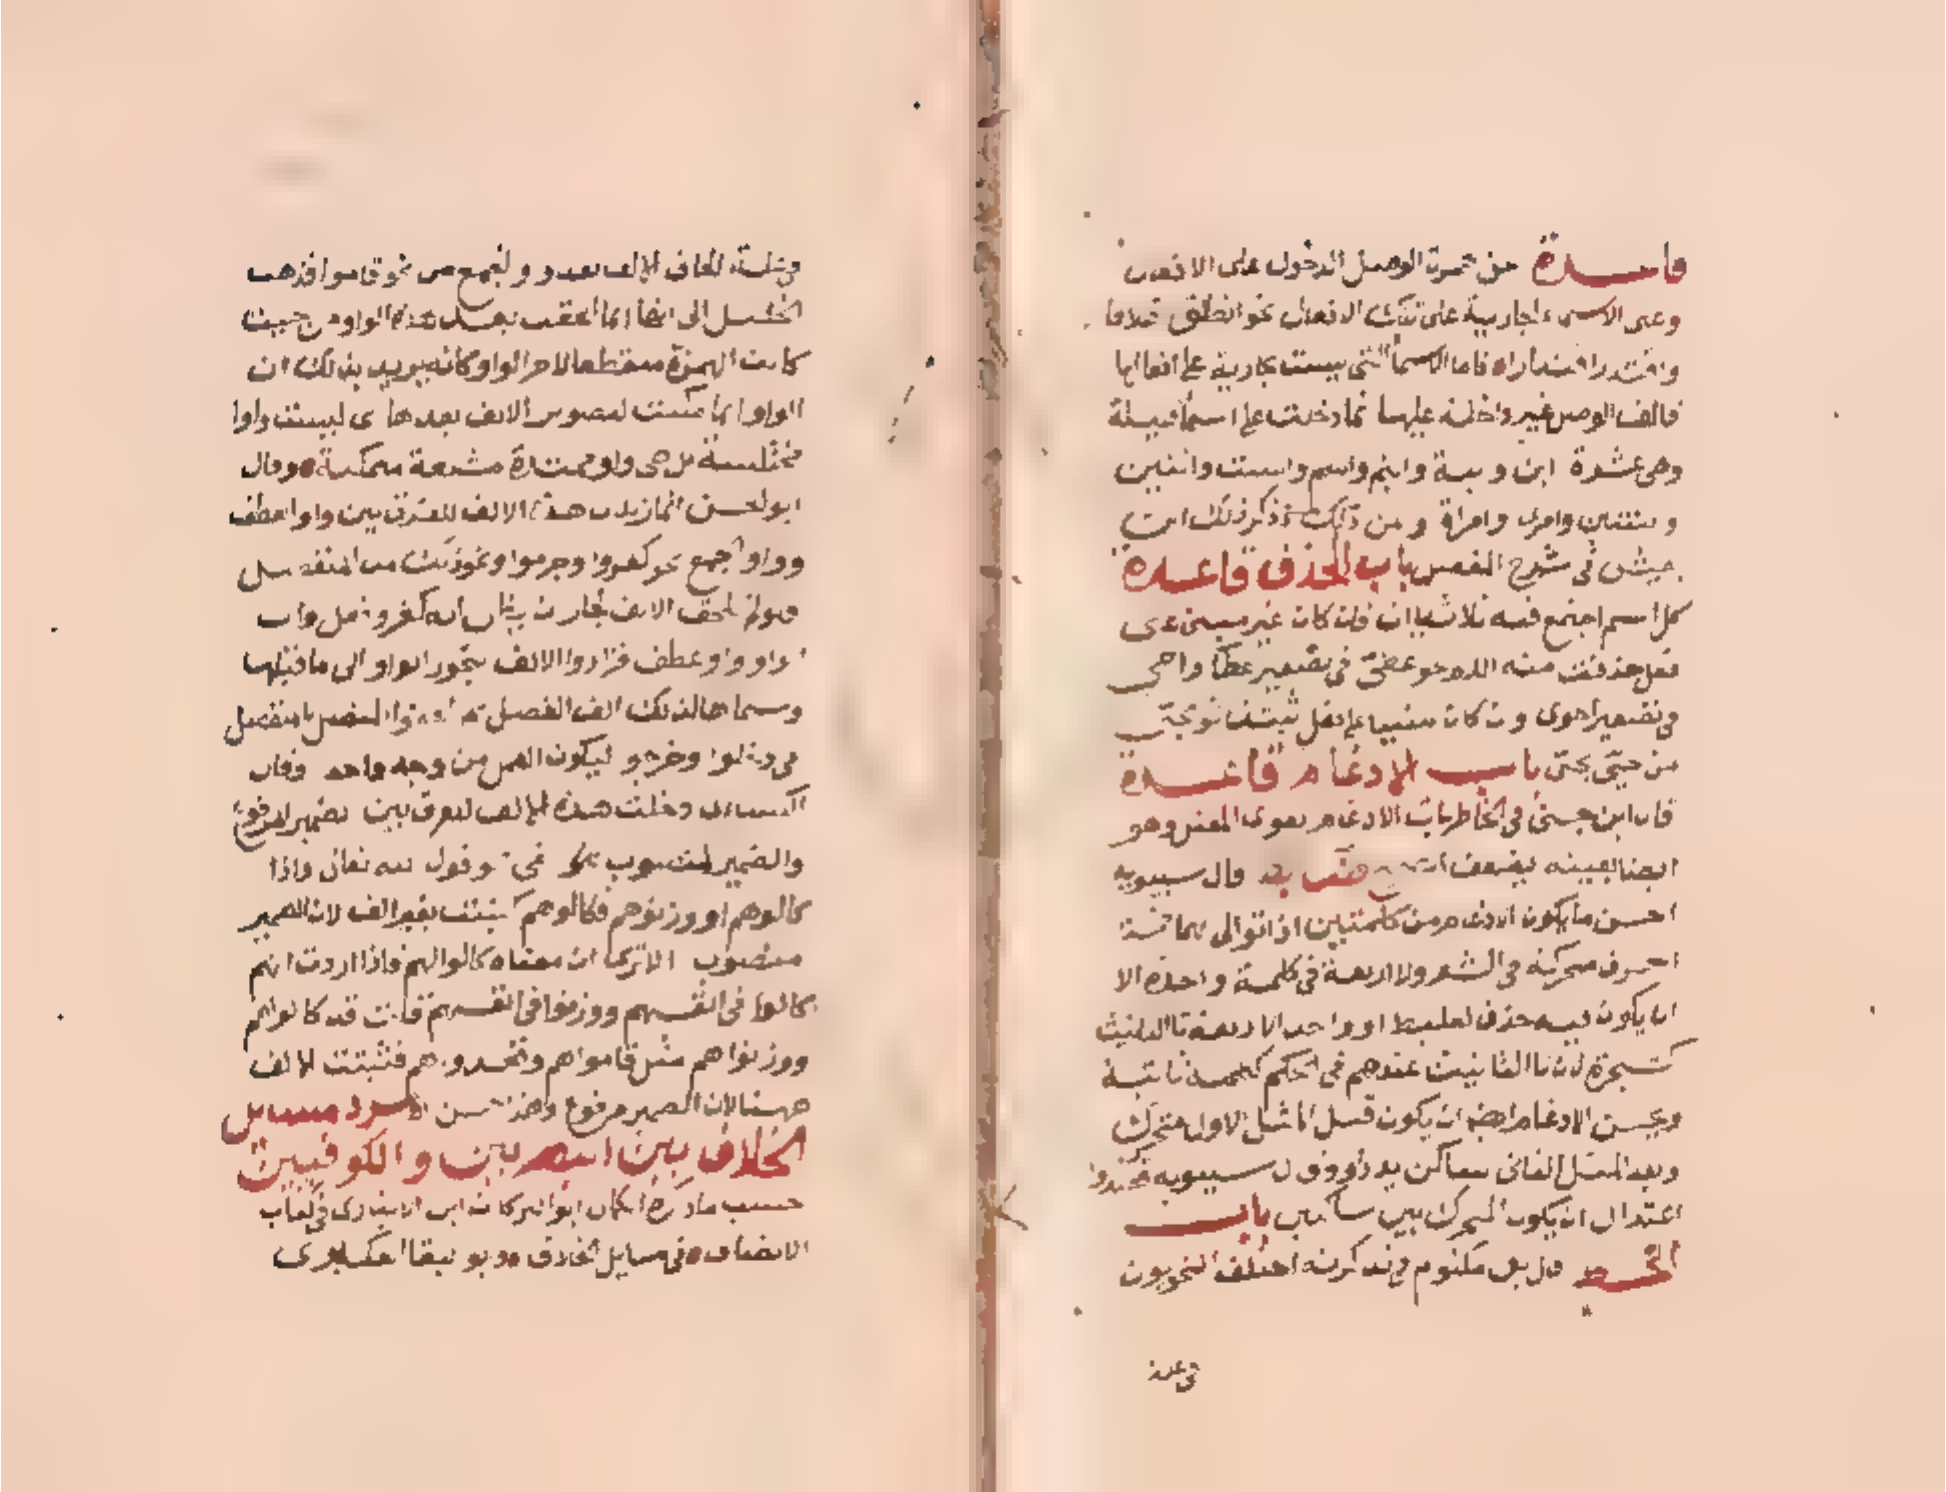 قاعدة من همزة الوصل الدخول على الافعال
وعلى الاسماء الجارية على تلك الافعال نحو انطلق انطلاقا
واقتدر اقتدارا فاما الاسماء التي ليست بجارية على افعالها
فالف الوصل غير داخلة عليها انما دخلت على اسماء قليلة
وهي عشرة ابن وابنة وابنم واسم واست واثنين
واثنتين وامرئ وامراة ومن ذلك ذكر ذلك ابن
يعيش في شرح المفصل باب الحذف قاعدة
كل اسم اجتمع فيه ثلاث ياات فان كان غير مبني على
فعل حذفت منه اللام نحو عطي في تصغير عطا واحي
في تصغير احوى وان كان مبنيا على فعل ثبتت نحو يحيي
من حيى يحيي باب الادغام قاعدة
قال ابن جني في الخاطريات الادغام يقوي المعتل وهو
ايضا بعينه يضعف الصحيح قال سيبويه
احسن ما يكون الادغام من كلمتين اذا توالى بهما خمسة
احرف متحركة في الشعر ولا اربعة في كلمة واحدة الا
ان يكون فيه حذف لعلبط او واحد الاربعة تا التانيث
كشجرة لان تا التانيث عندهم في الحكم ككلمة ثانية
ويحسن الادغام ايضا ان يكون قبل المثل الاول متحرك
وبعد المثل الثاني ساكن يد داوود قال سيبويه قصدوا
اعتدال ان يكون المتحرك بين ساكنين باب
الخط قال ابن مكتوم في تذكرته اختلف النحويون
في علة
في علة الحاق الالف بعد واو الجمع من نحو قاموا فذهب
الخليل الى انها انما الحقت بعد هذه الواو من حيث
كانت الهمزة منقطعا لاخر الواو وكانه يريد بذلك ان
الواو انما مكنت لتصوير الالف بعدها اي ليست واوا
مختلسة بل هي واو ممتدة مشبعة متمكنة وقال
ابو الحسن انما زيدت هذه الالف للفرق بين واو العطف
وواو الجمع نحو كفروا وجروا ونحو ذلك من المنفصل
فلو لم تلحق الالف لجاز ان يظن انه كفر وفعل وان
الواو واو عطف فزادوا الالف لتحوز الواو الى ما قبلها
وسماها لذلك الف الفصل ثم الحقوا المتصل بالمنفصل
في دخلوا وخرجوا ليكون العمل من وجه واحد وقال
الكسائي دخلت هذه الالف للفرق بين الضمير المرفوع
والضمير المنصوب في نحو قول الله تعالى واذا
كالوهم او وزنوهم فكالوهم كتبت بغير الف لان الضمير
منصوب الا ترى ان معناه كالوا لهم فاذا اردت انهم
كالوا في انفسهم ووزنوا في انفسهم قلت قد كالوا هم
ووزنوا هم مثل قاموا هم وقعدوا هم فتثبت الالف
ههنا لان الضمير مرفوع وهذا حسن سرد مسائل
الخلاف بين البصريين والكوفيين
حسب ما ذكره الكمال ابو البركات ابن الانباري في كتاب
الانصاف في مسايل الخلاف وابو البقا العكبري